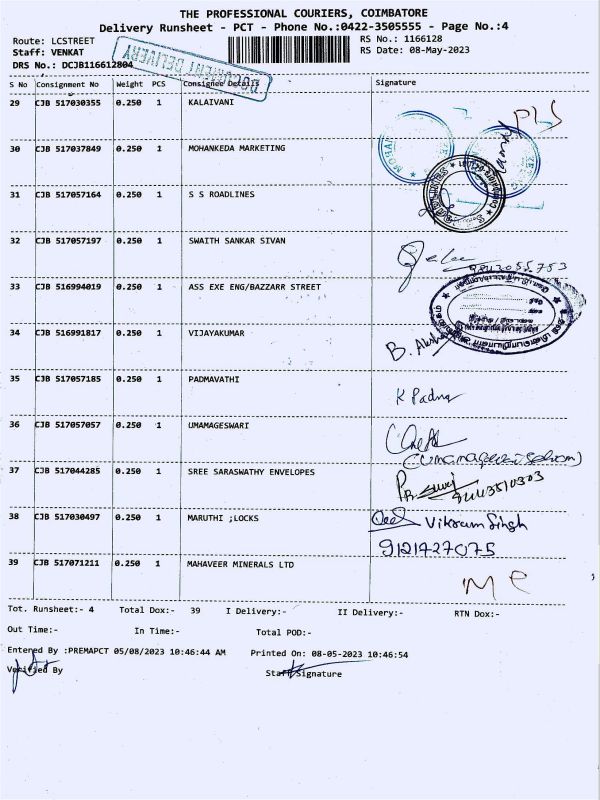 THE PROFESSIONAL COURIERS, COIMBATORE
Delivery Runsheet - PCT - Phone No.:0422-3505555 - Page No.:4
Route: LCSTREET RS No.: 1166128
Staff: VENKAT RS Date: 08-May-2023
DRS No.: DCJB116612804
DOCUMENT DELIVERY
S No Consignment No Weight PCS Consignee Details Signature
29 CJB 517030355 0.250 1 KALAIVANI
30 CJB 517037849 0.250 1 MOHANKEDA MARKETING
31 CJB 517057164 0.250 1 S S ROADLINES
32 CJB 517057197 0.250 1 SWAITH SANKAR SIVAN
33 CJB 516994019 0.250 1 ASS EXE ENG/BAZZARR STREET
34 CJB 516991817 0.250 1 VIJAYAKUMAR
35 CJB 517057185 0.250 1 PADMAVATHI
K Padma
36 CJB 517057057 0.250 1 UMAMAGESWARI
37 CJB 517044285 0.250 1 SREE SARASWATHY ENVELOPES
38 CJB 517030497 0.250 1 MARUTHI ;LOCKS
Vikram Singh
9121427075
39 CJB 517071211 0.250 1 MAHAVEER MINERALS LTD
Tot. Runsheet:- 4 Total Dox:- 39 I Delivery:- II Delivery:- RTN Dox:-
Out Time:- In Time:- Total POD:-
Entered By :PREMAPCT 05/08/2023 10:46:44 AM Printed On: 08-05-2023 10:46:54
Verified By Staff Signature